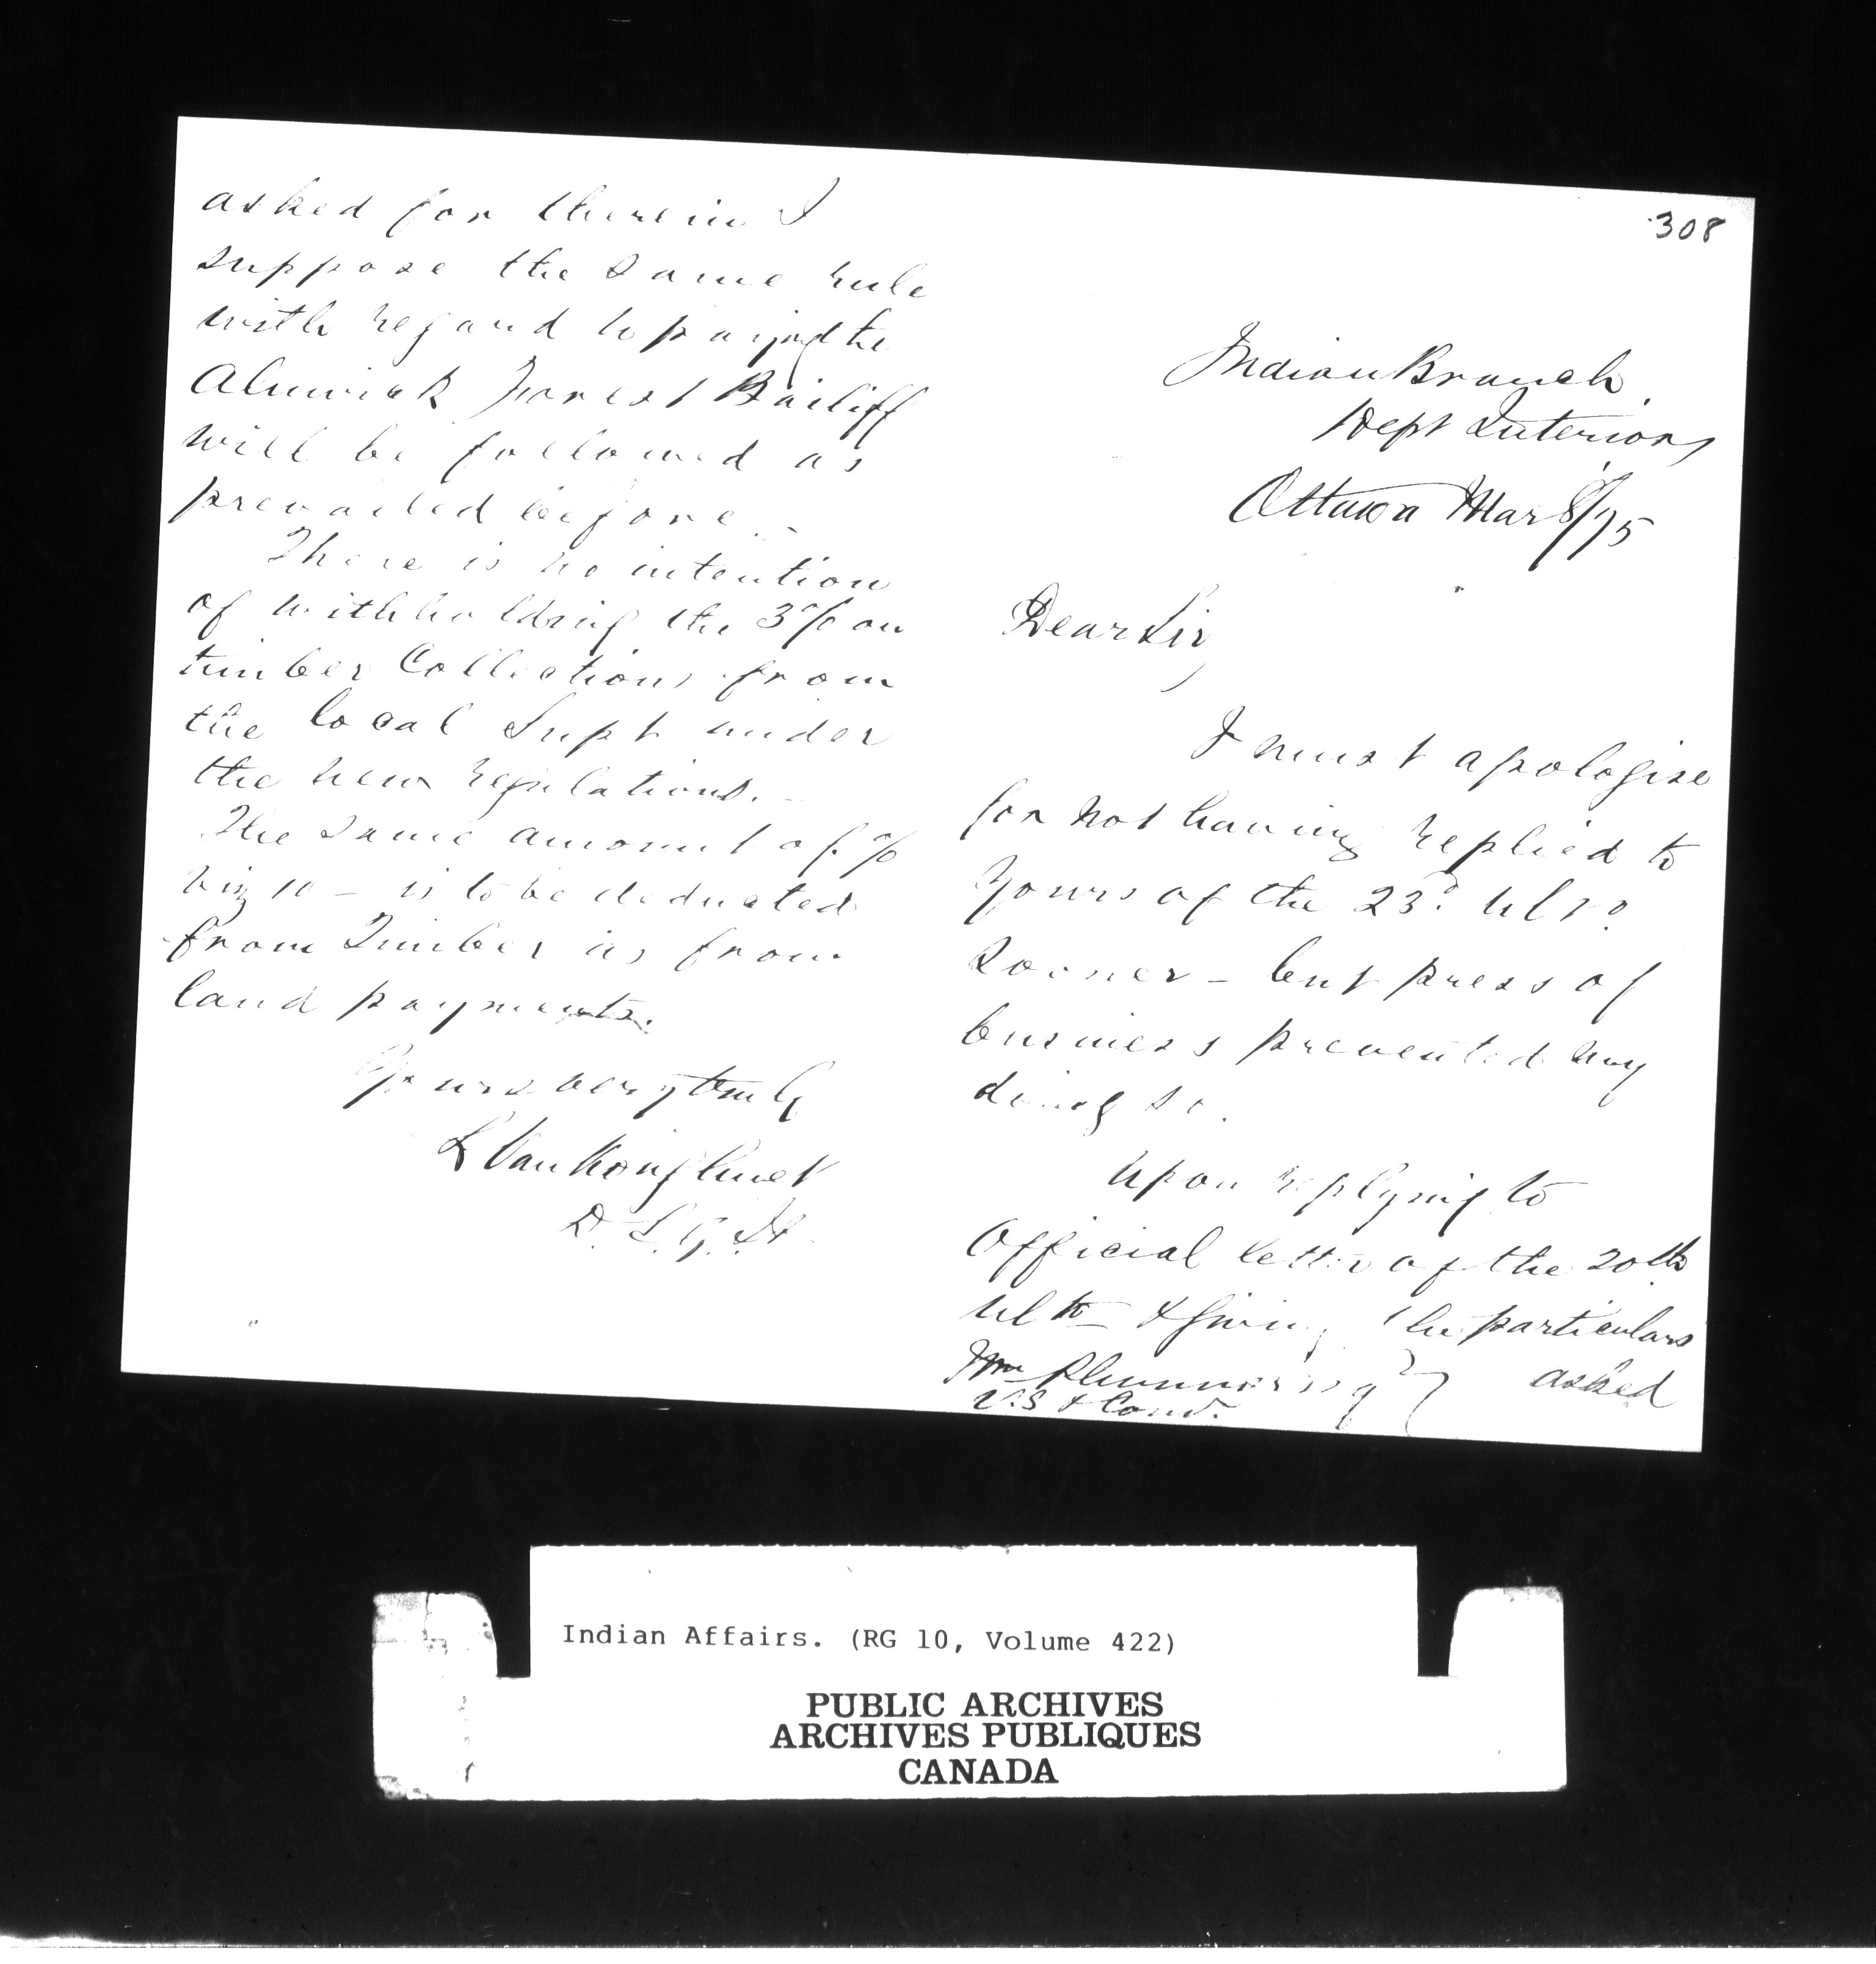 308
Indian Branch
Dept Interior,
Ottawa Mar 8/75
Dear Sir,
I must apologise
for not having replied to
Yours of the 23d. ulto.
Sooner – but press of
business prevented my
doing so.
Upon replying to
Official letter of the 20th
ulto & giving the particulars
Wm Plummer Esq
V.S & Com.
asked
asked for therein I
suppose the same rule
with regard to paying the
Alnwick Forest Bailiff
will be followed as
prevailed before. –
There is no intention
of withholding the 3% on
timber Collections from
the local Supt under
the new regulations. –
The same amount of %
viz 10 – is to be deducted
from Timber as from
land payments.
Yours very truly
L VanKoughnet
D. S. G. IA
Indian Affairs. (RG 10, Volume 422)
PUBLIC ARCHIVES
ARCHIVES PUBLIQUES
CANADA